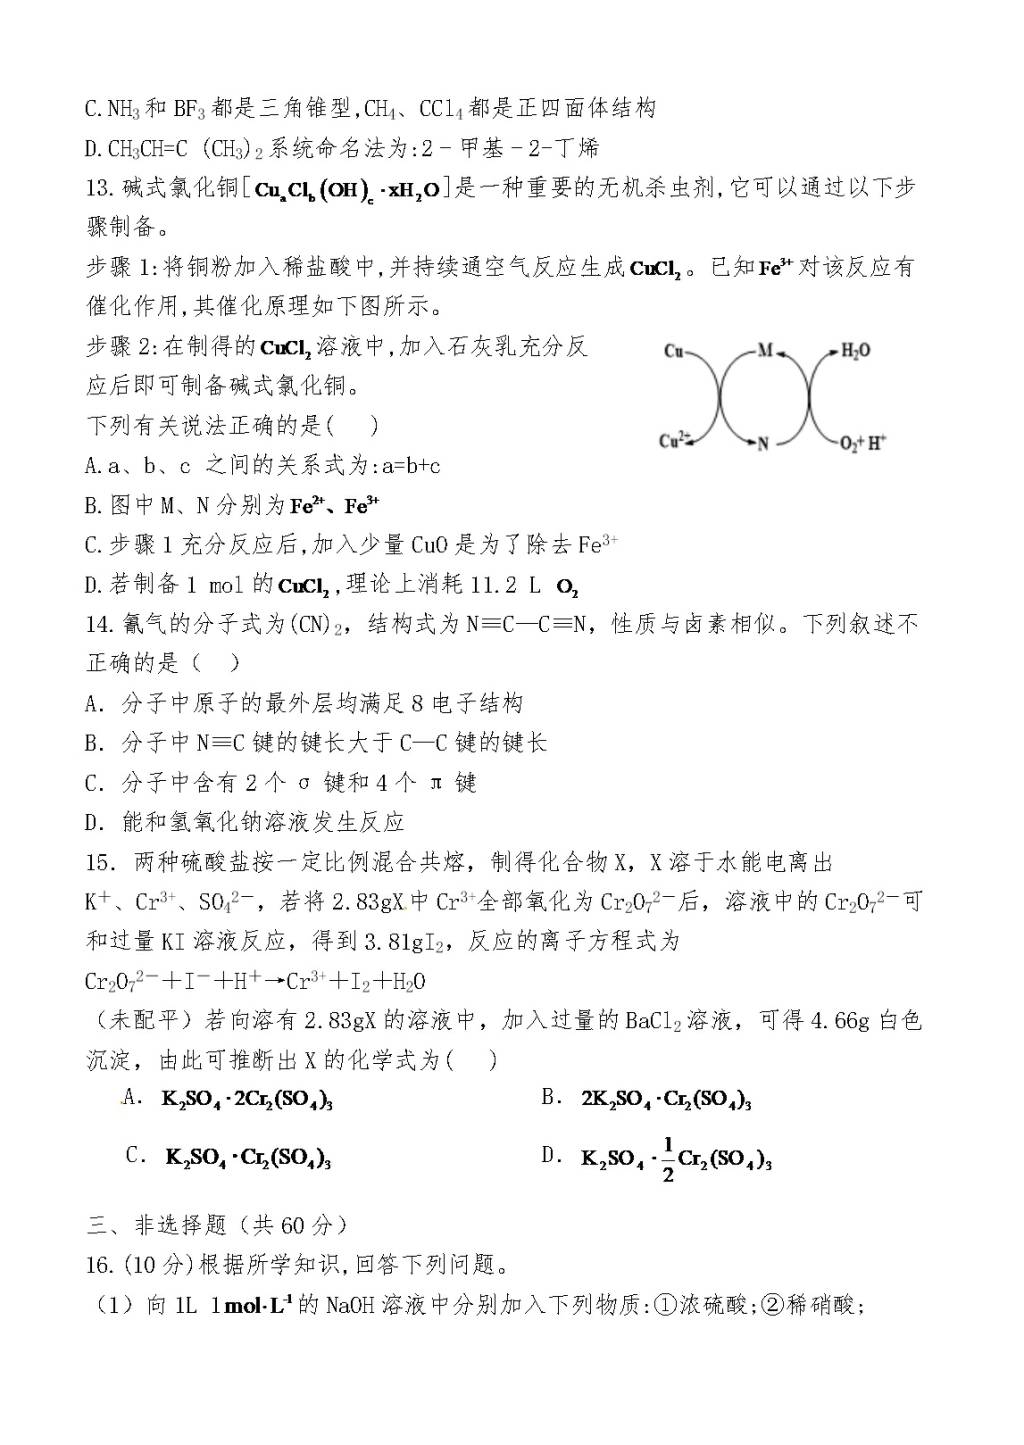 C.NH₃和BF₃都是三角锥型,CH₄、CCl₄都是正四面体结构
D.CH₃CH=C (CH₃)₂系统命名法为:2－甲基－2-丁烯
13.碱式氯化铜[CuₐClb(OH)c·xH₂O]是一种重要的无机杀虫剂,它可以通过以下步
骤制备。
步骤1:将铜粉加入稀盐酸中,并持续通空气反应生成CuCl₂。已知Fe³⁺对该反应有
催化作用,其催化原理如下图所示。
步骤2:在制得的CuCl₂溶液中,加入石灰乳充分反
应后即可制备碱式氯化铜。
Cu M H₂O
Cu²⁺ N O₂+H⁺
下列有关说法正确的是( )
A.a、b、c 之间的关系式为:a=b+c
B.图中M、N分别为Fe²⁺、Fe³⁺
C.步骤1充分反应后,加入少量CuO是为了除去Fe³⁺
D.若制备1 mol的CuCl₂,理论上消耗11.2 L O₂
14.氰气的分子式为(CN)₂，结构式为N≡C—C≡N，性质与卤素相似。下列叙述不
正确的是（ ）
A．分子中原子的最外层均满足8电子结构
B．分子中N≡C键的键长大于C—C键的键长
C．分子中含有2个σ键和4个π键
D．能和氢氧化钠溶液发生反应
15．两种硫酸盐按一定比例混合共熔，制得化合物X，X溶于水能电离出
K⁺、Cr³⁺、SO₄²⁻，若将2.83gX中Cr³⁺全部氧化为Cr₂O₇²⁻后，溶液中的Cr₂O₇²⁻可
和过量KI溶液反应，得到3.81gI₂，反应的离子方程式为
Cr₂O₇²⁻＋I⁻＋H⁺→Cr³⁺＋I₂＋H₂O
（未配平）若向溶有2.83gX的溶液中，加入过量的BaCl₂溶液，可得4.66g白色
沉淀，由此可推断出X的化学式为( )
A．K₂SO₄·2Cr₂(SO₄)₃ B．2K₂SO₄·Cr₂(SO₄)₃
C．K₂SO₄·Cr₂(SO₄)₃ D．K₂SO₄·1/2Cr₂(SO₄)₃
三、非选择题（共60分）
16.(10分)根据所学知识,回答下列问题。
（1）向1L 1mol·L⁻¹的NaOH溶液中分别加入下列物质:①浓硫酸;②稀硝酸;